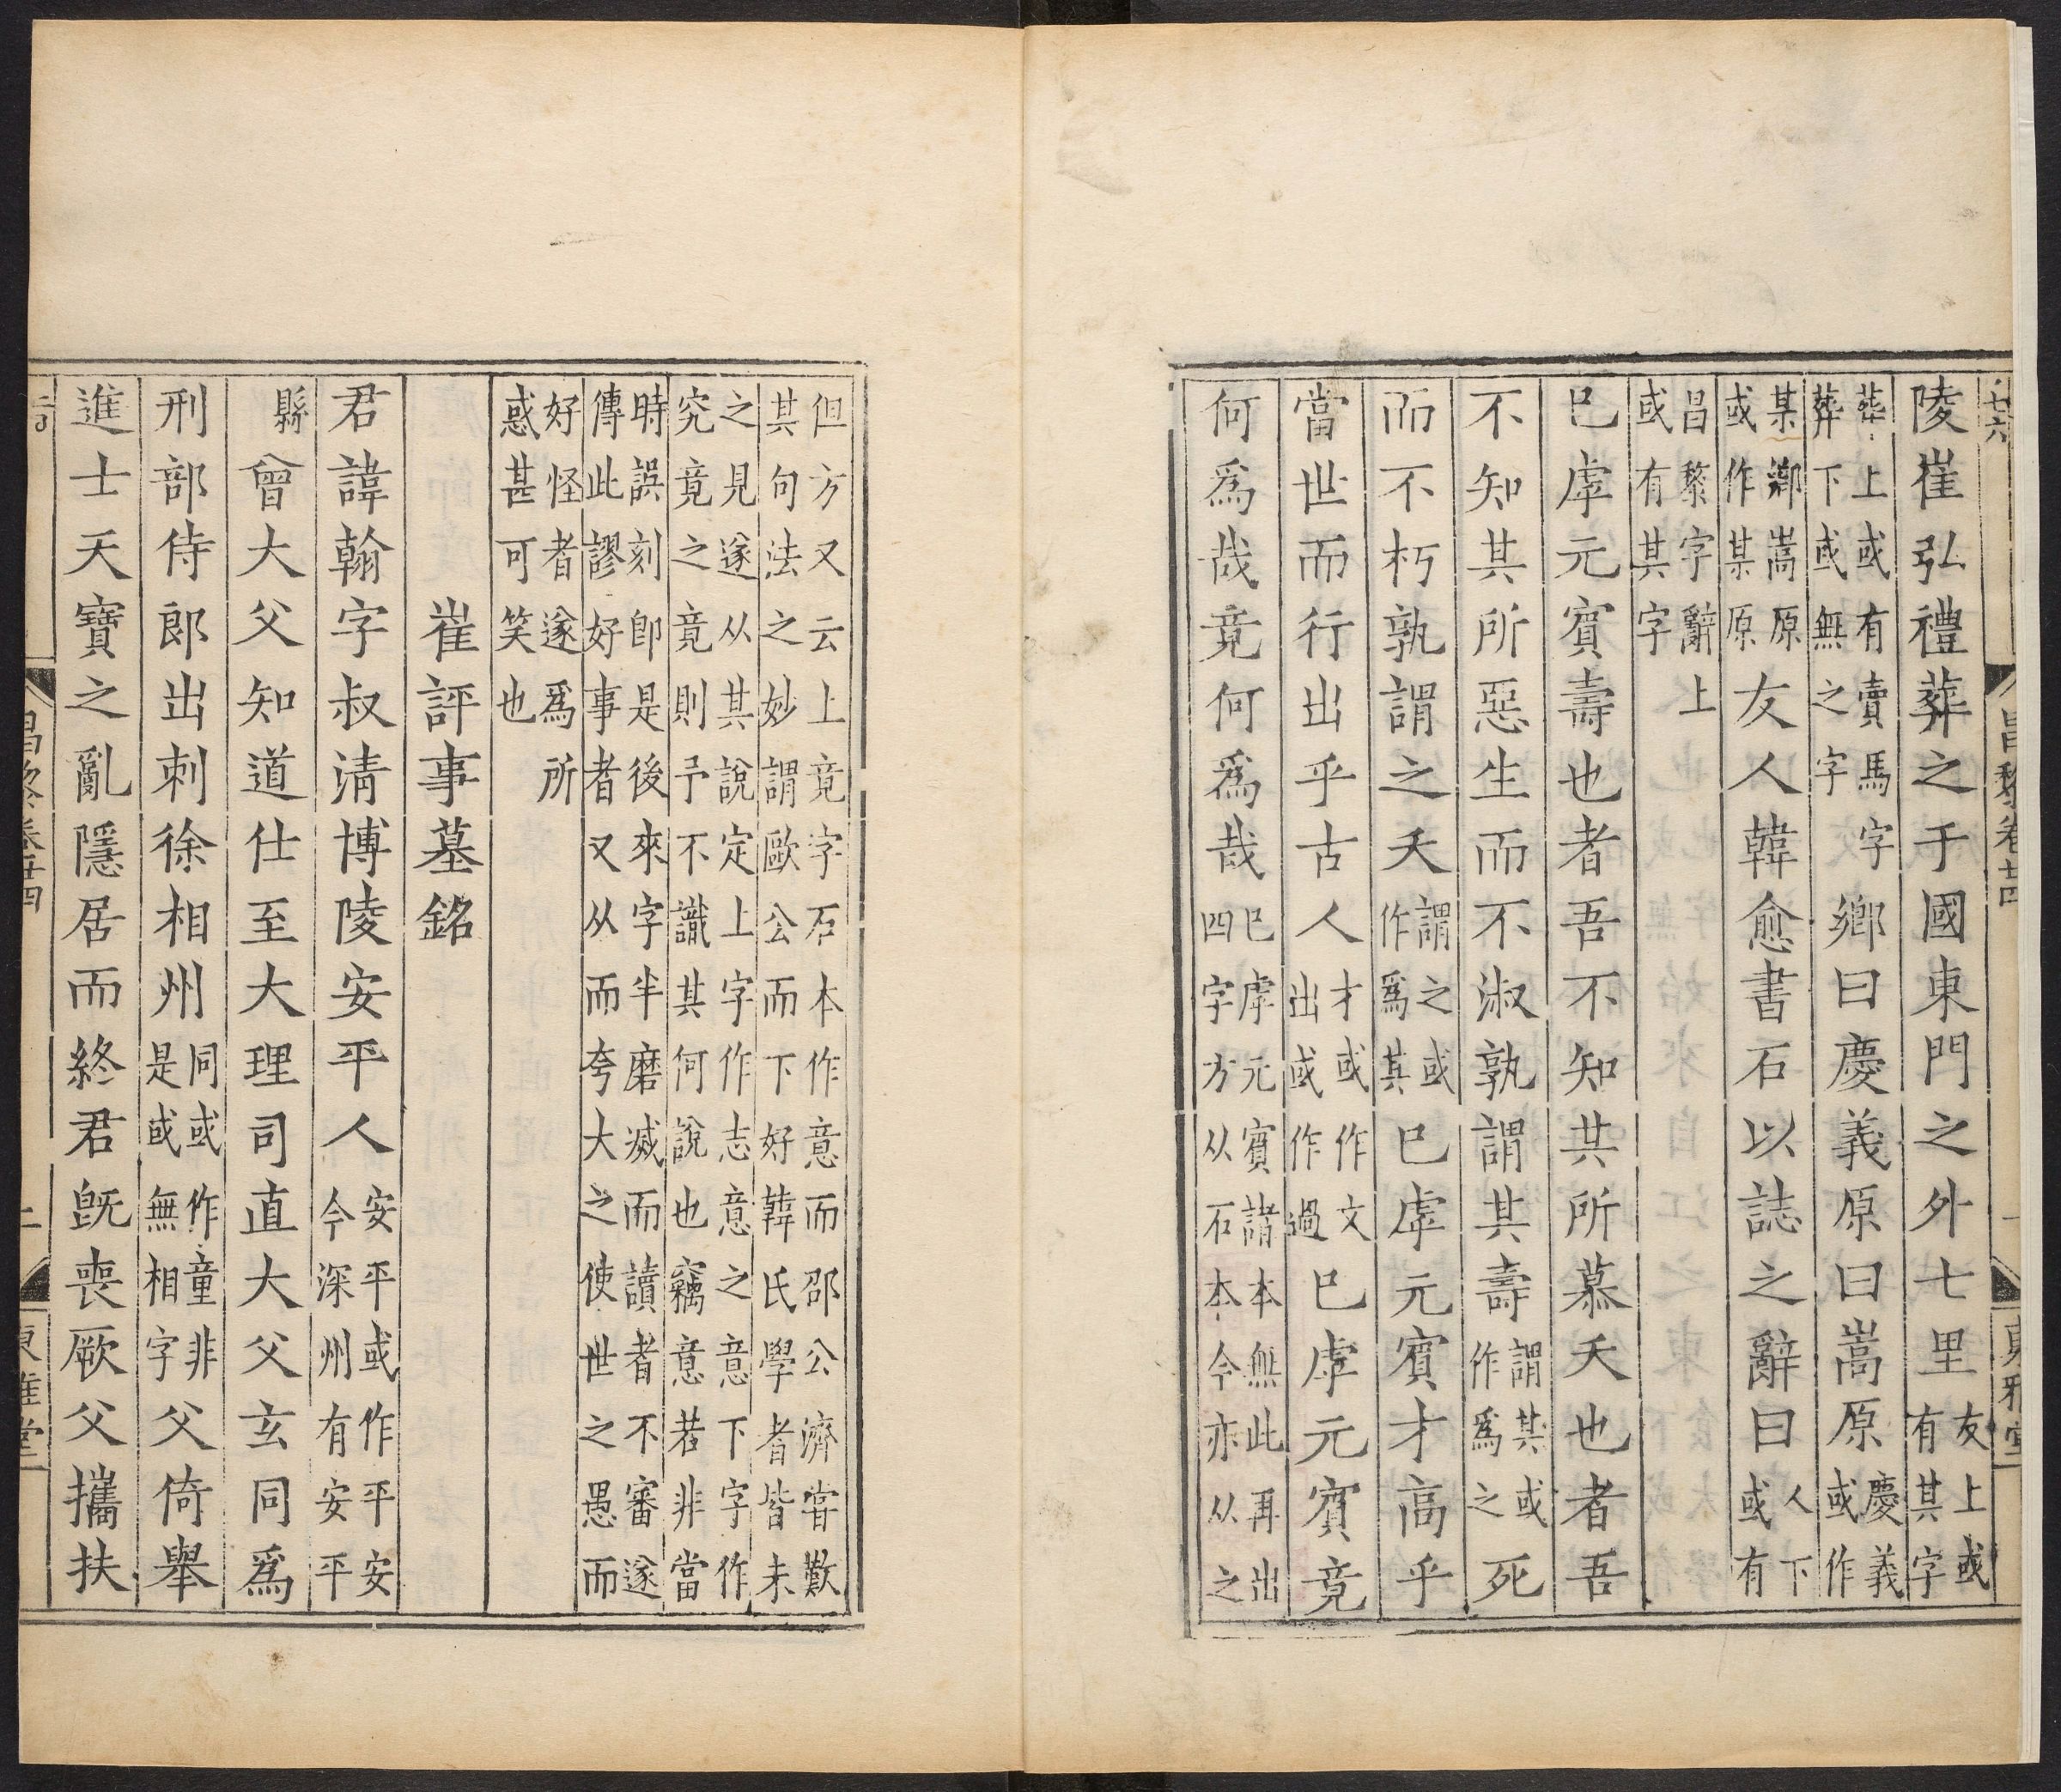 陵崔弘禮葬之于國東門之外七里友上或有其字
葬上或有賣馬字葬下或無之字鄉曰慶義原曰嵩原慶義或作
某鄉嵩原或作某原友人韓愈書石以誌之辭曰人下或有
昌黎字辭上或有其字
已虖元賓壽也者吾不知其所慕夭也者吾
不知其所惡生而不淑孰謂其壽謂其或作爲之死
而不朽孰謂之夭謂之或作爲其已虖元賓才高乎
當世而行出乎古人才或作文出或作過已虖元賓竟
何爲哉竟何爲哉已虖元賓諸本無此再出四字方从石本今亦从之
昌黎卷廿四
東雅堂
但方又云上竟字石本作意而邵公濟甞歎其句法之妙謂歐公而下好韓氏學者皆未
之見遂从其說定上字作志意之意下字作究竟之竟則予不識其何說也竊意若非當
時誤刻即是後來字半磨滅而讀者不審遂傳此謬好事者又从而夸大之使世之愚而
好怪者遂爲所惑甚可笑也
崔評事墓銘
君諱翰字叔淸博陵安平人安平或作平安今深州有安平
縣曾大父知道仕至大理司直大父玄同爲
刑部侍郎出刺徐相州同或作童非是或無相字父倚舉
進士天寶之亂隱居而終君旣喪厥父攜扶
昌黎卷廿四
二
東雅堂